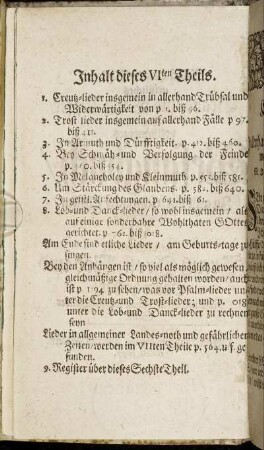 Inhalt dieses VIten Theils.
1. Creutz-lieder insgemein in allerhand Trübsal und
Widerwärtigkeit von p 1. biß 96.
2. Trost lieder insgemein auf allerhand Fälle p 97.
biß 411.
3. In Armuth und Dürfftigkeit. p. 412. biß 460.
4. Bey Schmäh- und Verfolgung der Feinde
p. biß 554.
5. In Melancholey und Kleinmuth. p. 555. biß 581.
6. Um Stärckung des Glaubens. p. 582. biß 640.
7. In geistl. Anfechtungen. p. 641. biß
8. Lob- und Danck-lieder / so wohl insgemein / als
auf einige sonderbahre Wohlthaten GOttes
gerichtet. p biß
Am Ende sind etliche Lieder / am Geburts-tage zu
singen.
Bey den Anhängen ist / so viel als möglich gewesen
gleichmäßige Ordnung gehalten worden / auch
ist p zu sehen / was vor Psalm-lieder un-
ter die Creutz- und Trost-lieder; und p.
unter die Lob- und Danck-lieder zu rechnen
seyn
Lieder in allgemeiner Landes-noth und gefährlichen
Zeiten / werden im VIIten Theile p. 564. u. f. ge-
funden.
9. Register über dieses Sechste Theil.